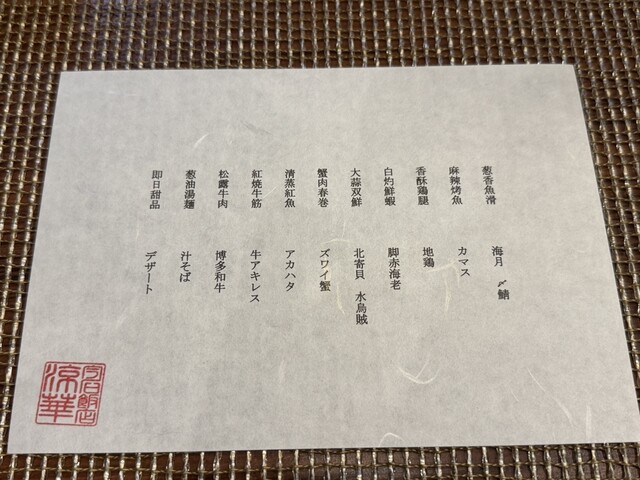 葱香魚滑 海月 〆鯖
麻辣烤魚 カマス
香酥鶏腿 地鶏
白灼鮮蝦 脚赤海老
大蒜双鮮 北寄貝 水烏賊
蟹肉春巻 ズワイ蟹
清蒸紅魚 アカハタ
紅焼牛筋 牛アキレス
松露牛肉 博多和牛
葱油湯麺 汁そば
即日甜品 デザート
今宿飯店
涼華